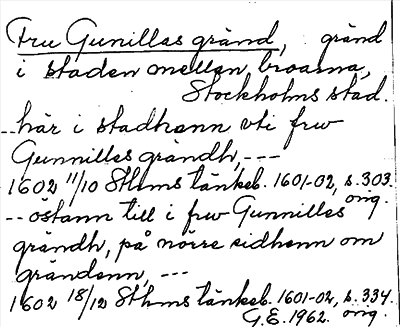 Fru Gunillas gränd, gränd
i staden mellan broarna,
Stockholms stad.
--här i stadhenn vti frw
Gunnilles grändh, ---
1602 11/10 Sthms tänkeb. 1601-02, s. 303.
orig.
-- östann till i frw Gunnilles
grändh, på nörre sidhenn om
grändenn, ---
1602 18/12 Sthms tänkeb. 1601-02, s. 334.
G.E. 1962. orig.